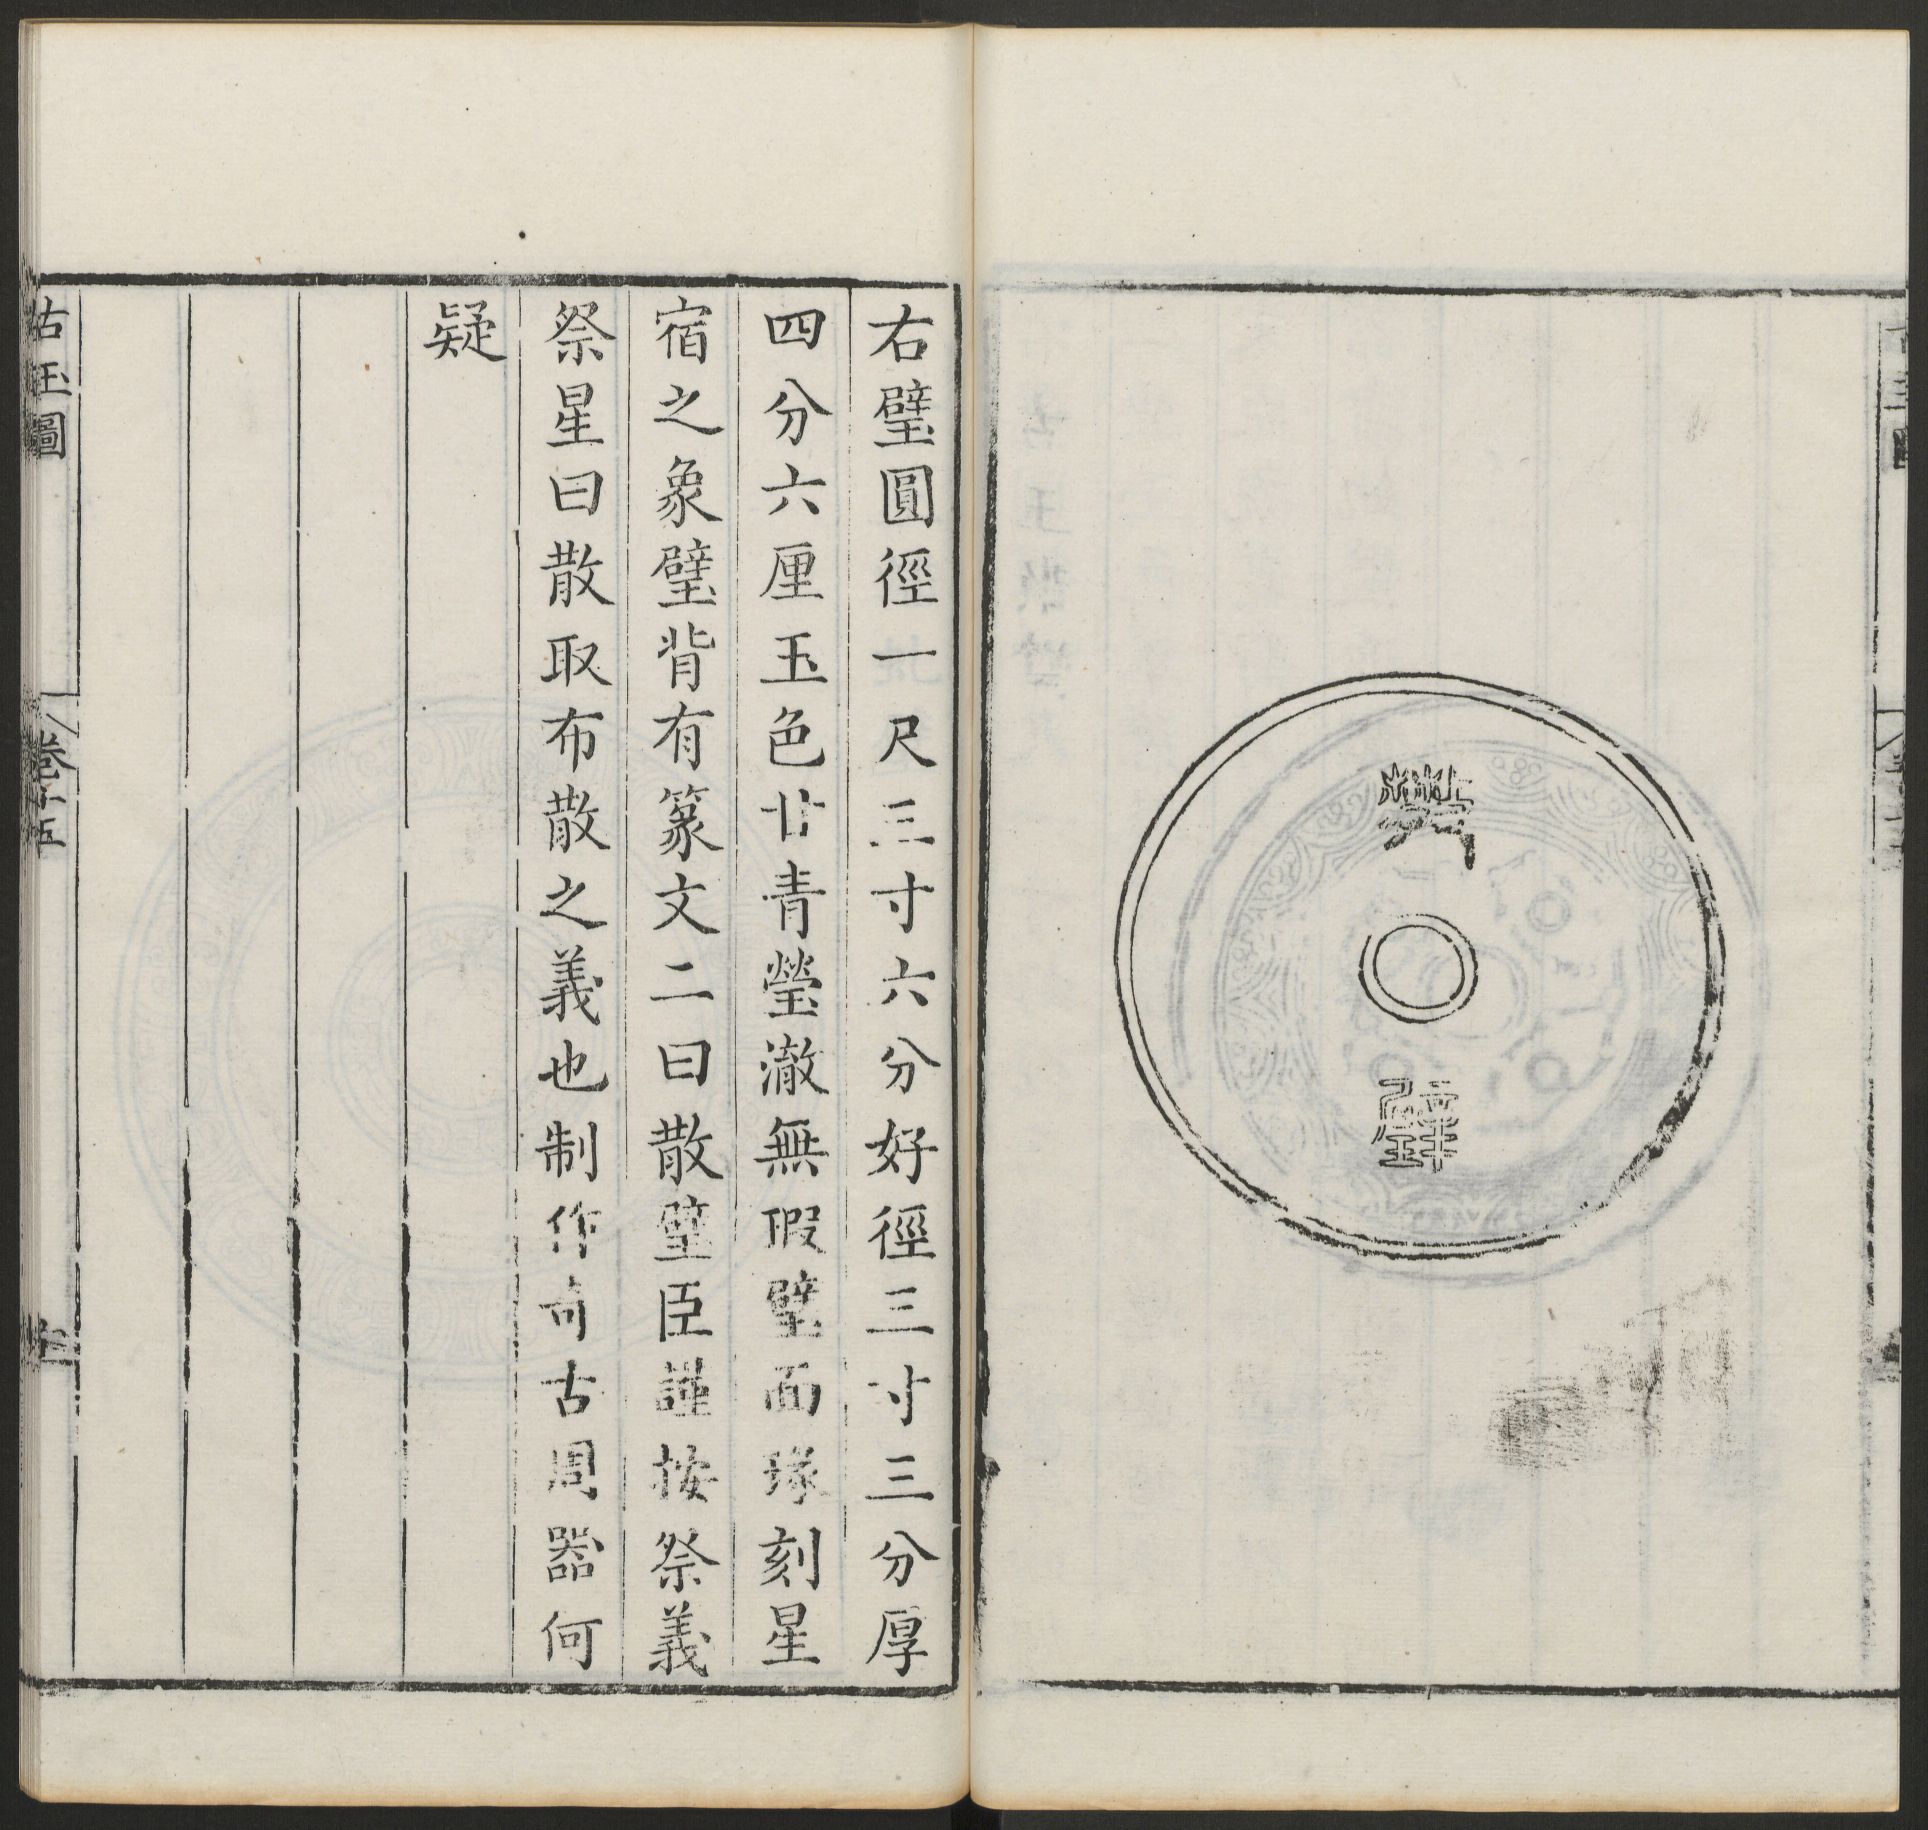 散
璧
右璧圓徑一尺三寸六分好徑三寸三分厚
四分六厘玉色甘青瑩澈無瑕璧面琢刻星
宿之象璧背有篆文二曰散璧臣謹按祭義
祭星曰散取布散之義也制作奇古周器何
疑
古玉圖
卷十五